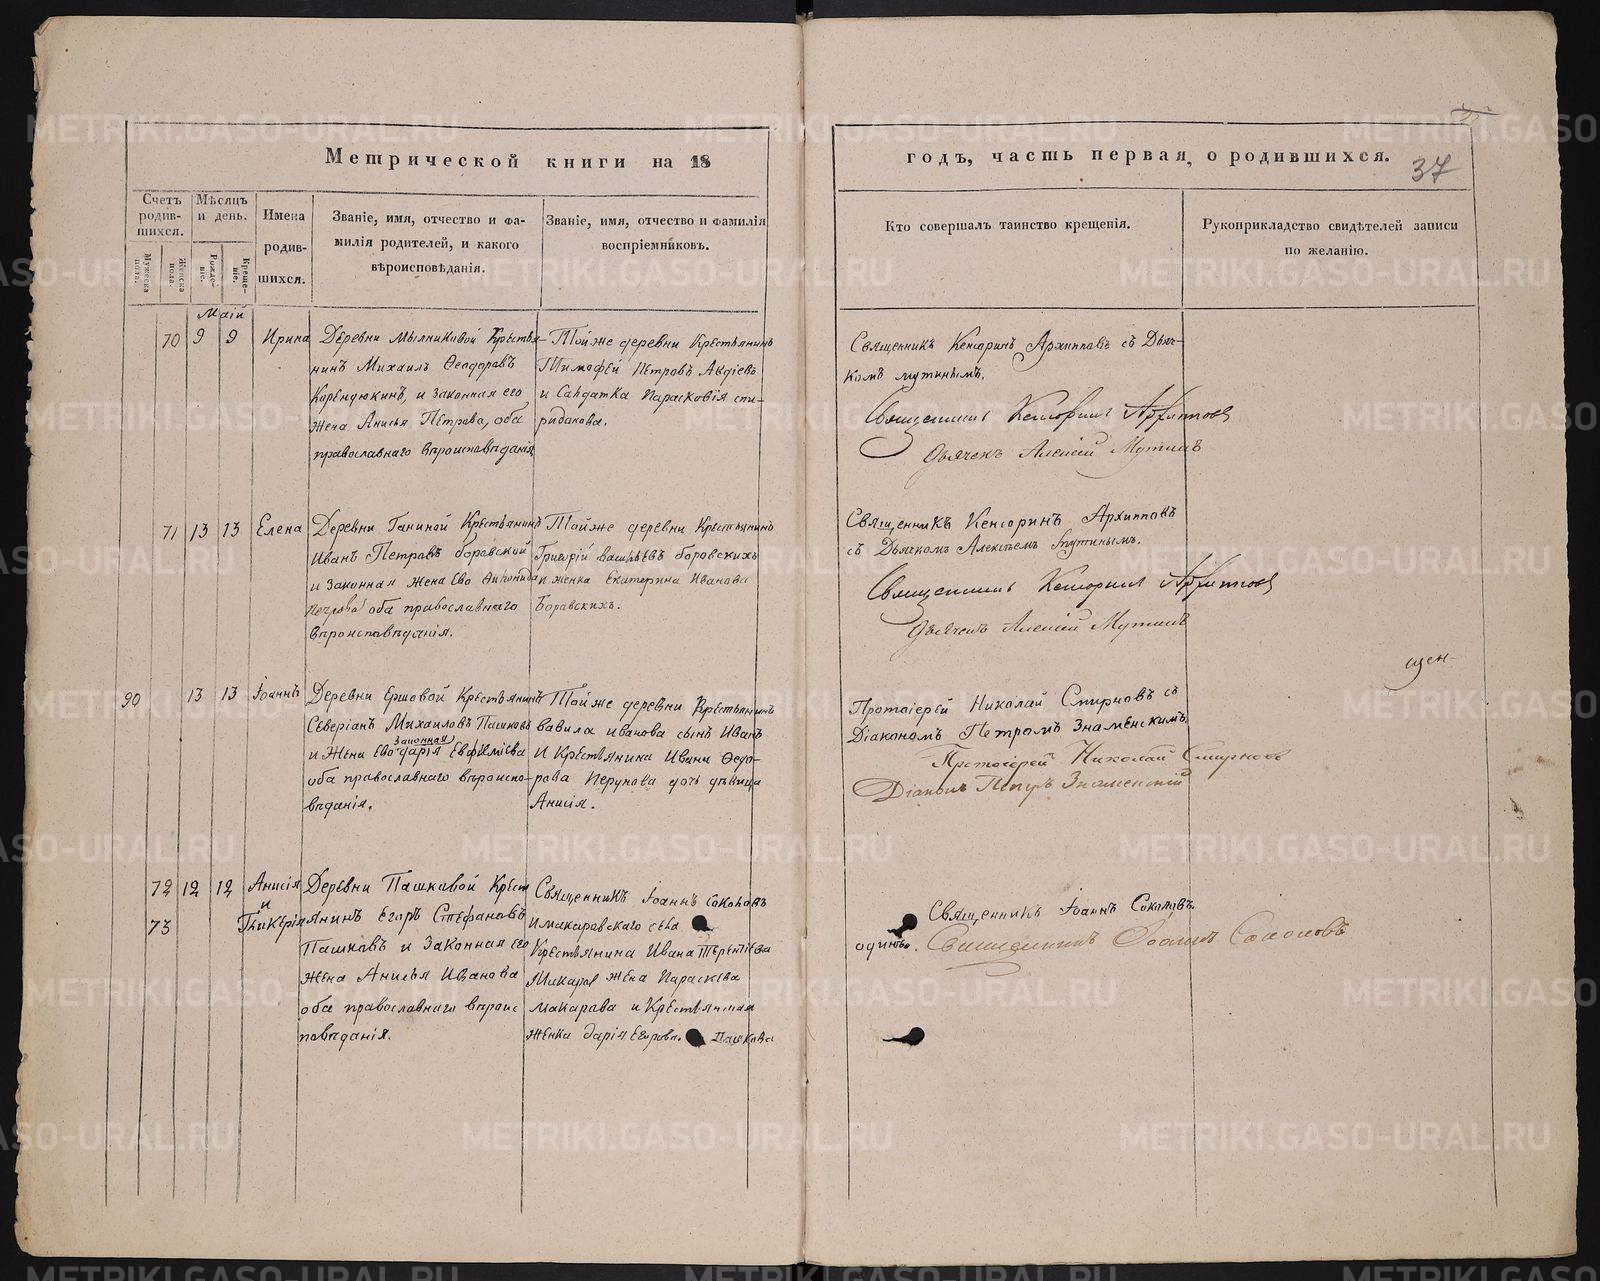 Метрической книги на 18
годъ, часть первая, о родившихся.
37
Счетъ родив-шихся.
Мужеска пола.
Женска пола.
Мѣсяцъ и день.
Рожде-ніе.
Креще-ніе.
Имена
родив-
шихся.
Званіе, имя, отчество и фа-
милія родителей, и какого
вѣроисповѣданія.
Званіе, имя, отчество и фамилія
воспріемниковъ.
Кто совершалъ таинство крещенія.
Рукоприкладство свидѣтелей записи
по желанію.
Май
70 9 9 Ирина
Деревни Мыльниковой Крестья-
нинъ Михаилъ Ѳеодоровъ
Карендюкинъ, и законная его
жена Анисья Петрова, оба
православнаго вѣроисповѣданія
Той же деревни Крестьянинъ
Тимофей Петровъ Авдіевъ
и Салдатка Парасковія Спи-
ридонова.
Священникъ Кенсоринъ Архипповъ съ Дьяч-
комъ Мутинымъ.
Священникъ Кенсоринъ Архипповъ
Дьячекъ Алексій Мутинъ
71 13 13 Елена
Деревни Ганиной Крестьянинъ
Иванъ Петровъ Боровской
и законная жена Ево
Петрова оба православнаго
вѣроисповѣданія.
Той же деревни Крестьянинъ
Григорій Боровскихъ
и женка Екатерина Иванова
Боравскихъ.
Священникъ Кенсоринъ Архипповъ
съ Дьячкомъ Алексѣемъ Мутинымъ.
Священникъ Кенсоринъ Архипповъ
Дьячекъ Алексій Мутинъ
щен-
90 13 13 Іоаннъ
Деревни Ершовой Крестьянинъ
Северіанъ Михаиловъ Пашковъ
законная
и Жена Ево Дарія Евфиміева
оба православнаго вѣроиспо-
вѣданія.
Той же деревни Крестьянинъ
Вавила Иванова сынъ Иванъ
И Крестьянина Ивана Ѳедо-
рова Перунова дочь дѣвица
Анисія.
Протоіерей Николай Смирновъ съ
Діакономъ Петромъ Знаменскимъ
Протоіерей Николай Смирновъ
Діаконъ Петръ Знаменскій
72 12 12 Анисія
и
73 Гликерія
Деревни Пашковой Крест
янинъ Егоръ Стефановъ
Пашковъ и Законная его
Жена Анисья Иванова
оба православнаго вѣроис
повѣданія.
Священникъ Іоаннъ Соколовъ
и макаровскаго села
Крестьянина Ивана Терентіева
Макаров жена Параскева
Макарова и Крестьянская
женка Дарія Егорова. Пашкова
Священникъ Іоаннъ Соколовъ
одинъ. Священникъ Іоаннъ Соколовъ
METRIKI.GASO-URAL.RU